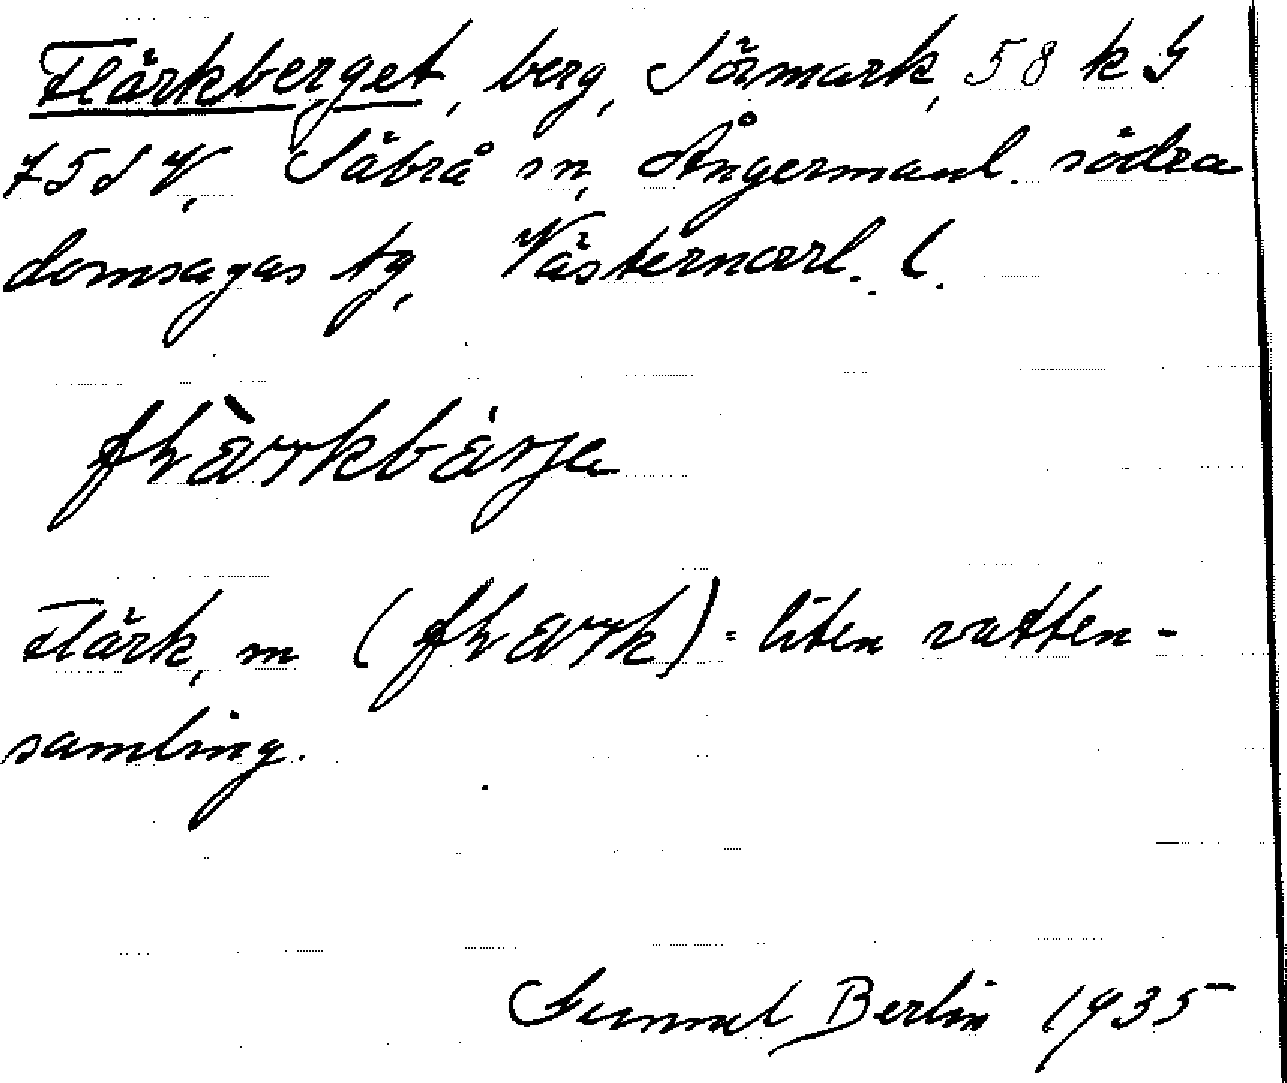 Flärkberget, berg, Sörmark, 58 k G
75 S V, Säbrå sn, Ångermanl. södra
domsagas tg, Västernorrl. l.
Flärk, m ( ) = liten vatten-
samling.
Berlin 1935